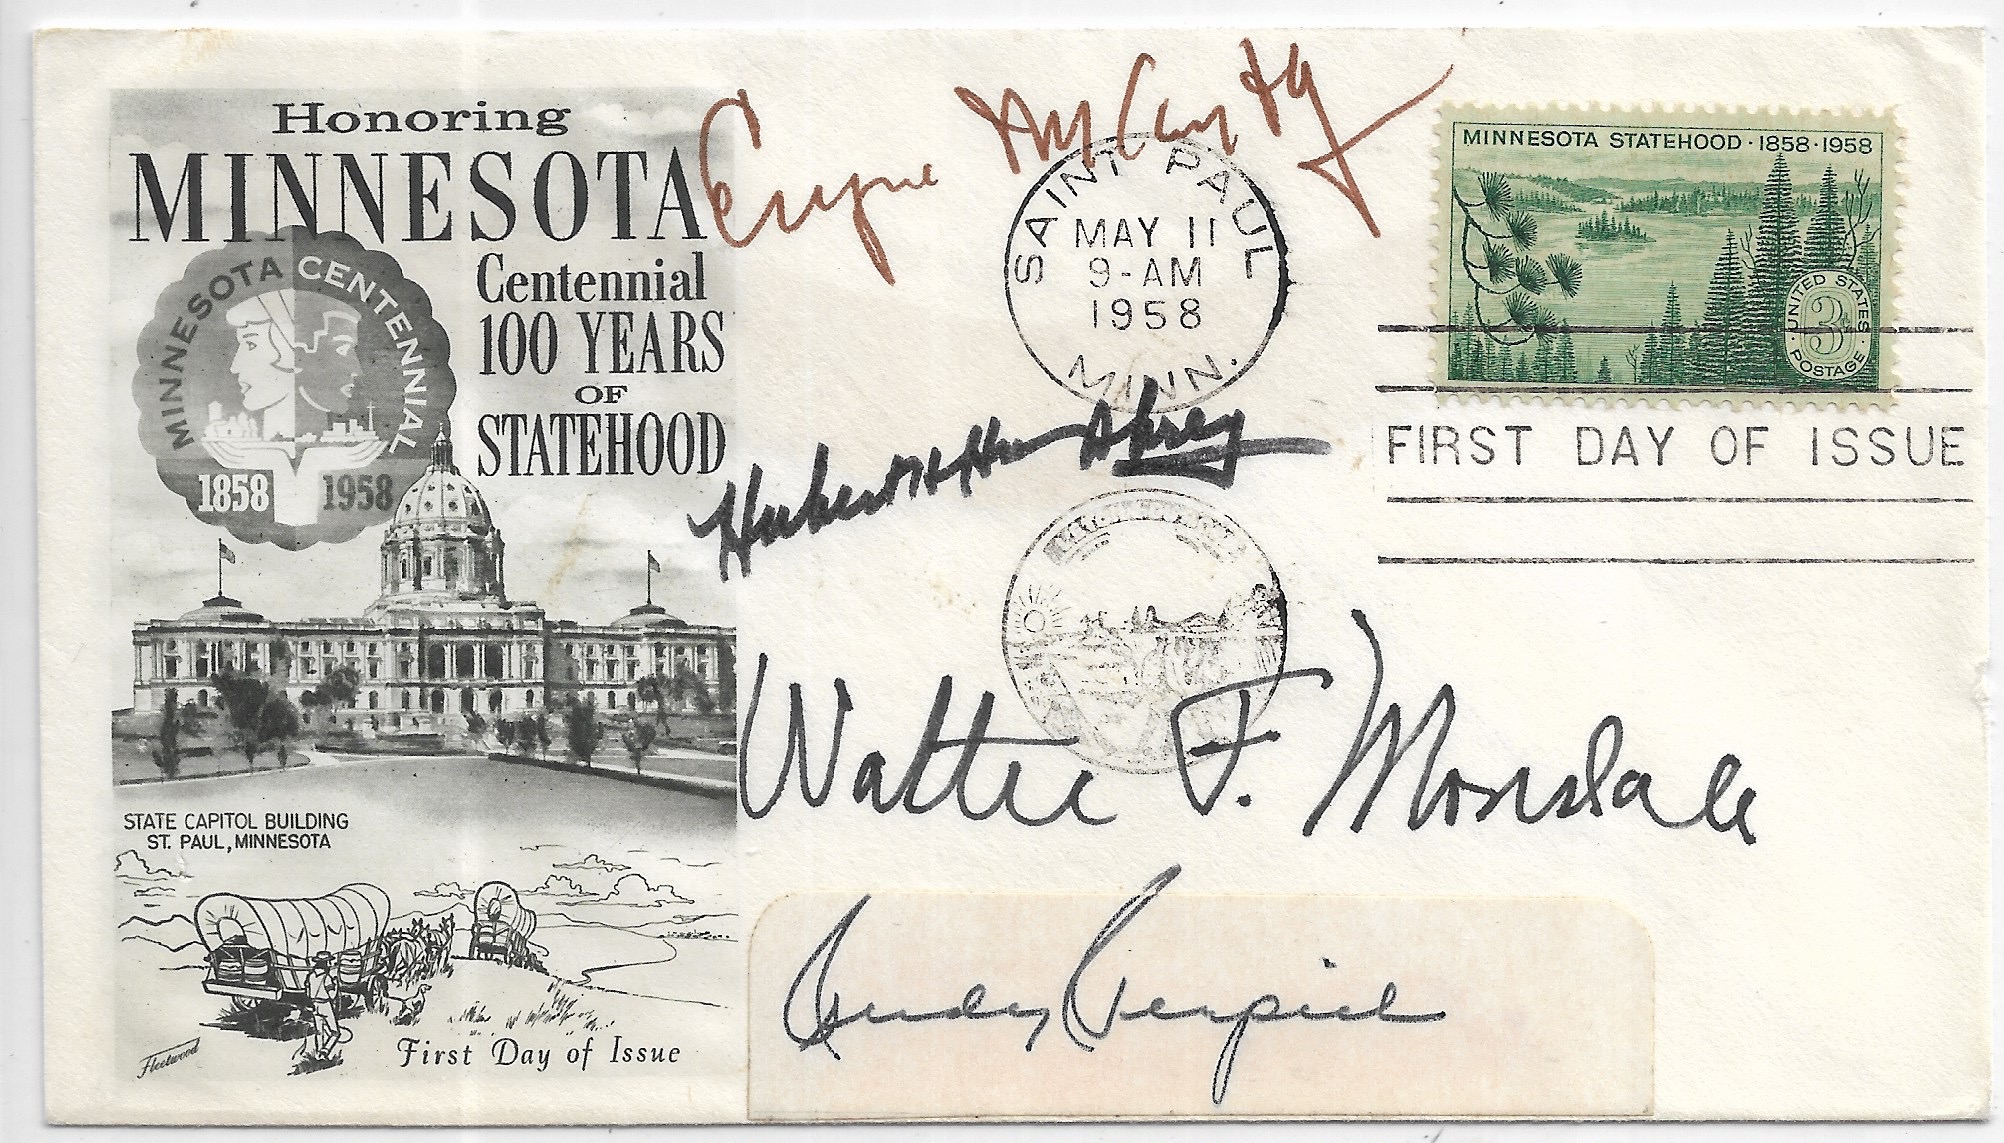 Honoring
MINNESOTA
Centennial
100 YEARS
OF
STATEHOOD
MINNESOTA CENTENNIAL
1858 1958
STATE CAPITOL BUILDING
ST. PAUL, MINNESOTA
Fleetwood
First Day of Issue
Eugene McCarthy
SAINT PAUL
MAY 11
9-AM
1958
MINN.
MINNESOTA STATEHOOD · 1858 · 1958
UNITED STATES
3¢
POSTAGE
FIRST DAY OF ISSUE
Hubert H Humphrey
Walter F. Mondale
Rudy Perpich